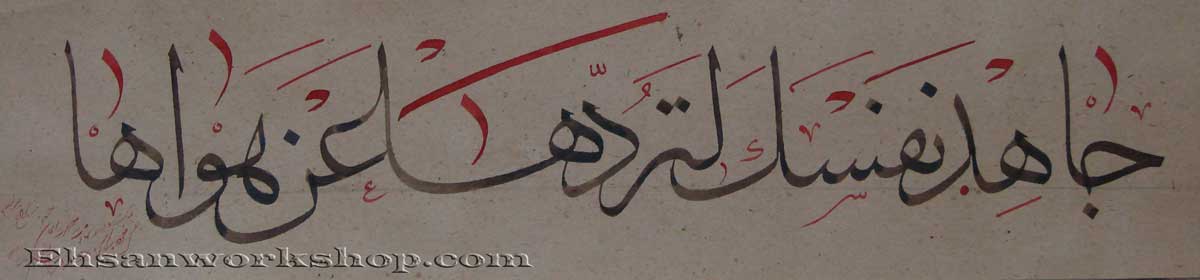 جاهد نفسك لتردها عن هواها
Ehsanworkshop.com